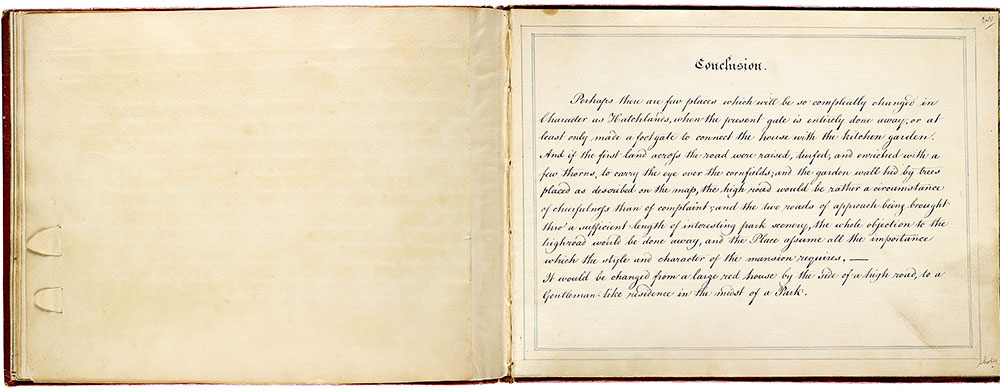 Conclusion.
Perhaps there are few places which will be so compleatly changed in
Character as Hatchlanes, when the present gate is entirely done away, or at
least only made a foot gate to connect the house with the kitchen garden.
And if the first land across the road were raised, turfed, and enriched with a
few thorns, to carry the eye over the cornfields; and the garden wall hid by trees
placed as described on the map, the high road would be rather a circumstance
of chearfulness than of complaint; and the two roads of approach being brought
thro' a sufficient length of interesting park scenery, the whole objection to the
highroad would be done away, and the Place assume all the importance
which the style and character of the mansion requires. —
It would be changed from a large red house by the side of a high road, to a
Gentleman-like residence in the midst of a Park.